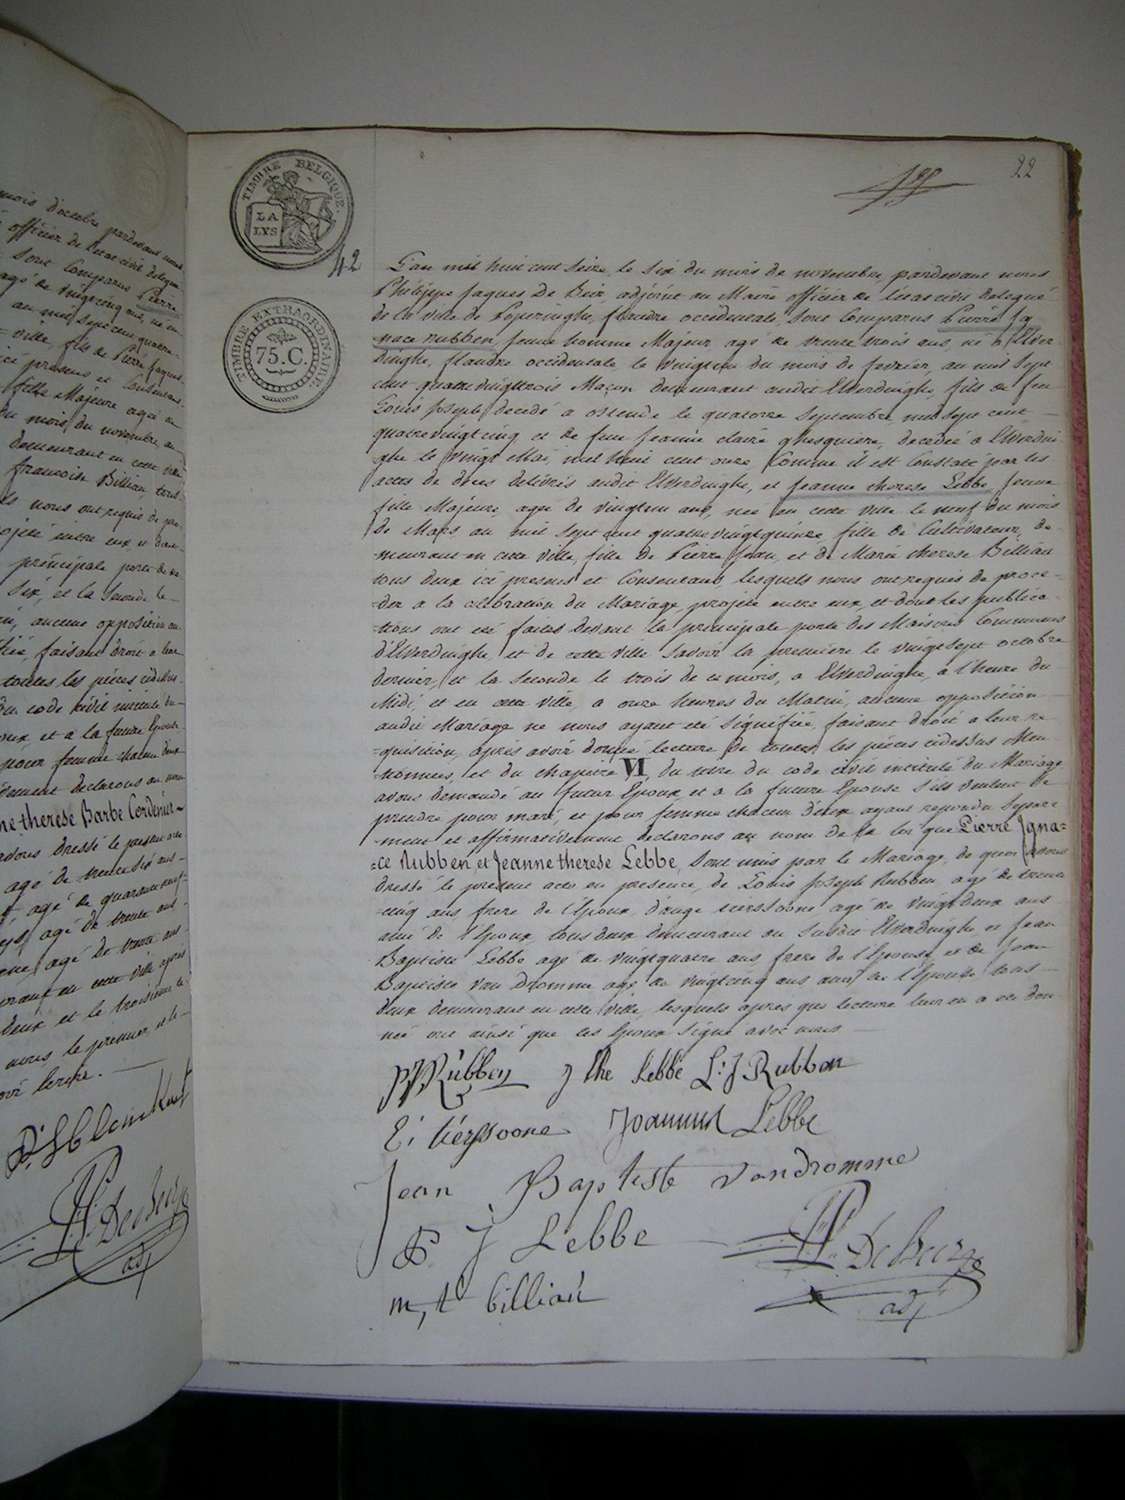 22
TIMBRE BELGIQUE.
LA
LYS
42
TIMBRE EXTRAORDINAIRE.
75.C.
L'an mil huit cent seize, le six du mois de novembre, pardevant nous
Philippe Jaques De adjoint au Maire officier de l'état civil delegué
de la ville de Poperinghe, flandre occidentale, sont comparus Pierre Ig
nace Rubben, jeune homme Majeur agé de trente trois ans, né à Elver
dinghe, flandre occidentale le vingt un du mois de fevrier, an mil sept
cent quatre vingt trois Maçon demeurant audit Elverdinghe, fils de feu
Louis Joseph, decedé a ostende le quatorze septembre mil sept cent
quatre vingt cinq et de feue Jeanne claire ghesquiere, decedée a Elverdin
ghe le vingt Mai, mil huit cent onze, Comme il est Constaté par les
actes de décès delivrés audit Elverdinghe, et Jeanne therese Lebbe, Jeune
fille Majeure, agée de vingt un ans, née en cette ville le neuf du mois
de Mars an mil sept cent quatre vingt quinze, fille de Cultivateur, de-
meurant en cette ville, fille de Pierre Jean, et de Marie therese Billiau
tous deux ici presens et Consentans, lesquels nous ont requis de proce-
-der a la celebration du Mariage, projeté entre eux, et dont les publica-
-tions ont été faites devant la principale porte des Maisons Communes
d'Elverdinghe, et de cette ville, Savoir la premiere le vingt sept octobre
dernier, et la seconde le trois de ce mois, a Elverdinghe, à l'heure du
Midi, et en cette ville, a onze heures du Matin, aucune opposition
audit Mariage ne nous ayant été signifiée, faisant droit a leur re
-quisition, après avoir donné lecture de toutes les pièces cidessus Men
tionnées, et du chapitre VI, du titre du code civil intitulé du Mariage
avons demandé au futur Epoux et a la future Epouse s'ils veulent se
prendre pour mari, et pour femme chacun d'eux ayant repondu separe
ment et affirmativement declarons au nom de la loi que Pierre Igna=
=ce Rubben, et Jeanne therese Lebbe, sont unis par le Mariage, de quoi avons
dressé le présent acte en presence, de Louis Joseph Rubben agé de trente
cinq ans frere de l'Epoux, agé de vingt deux ans
ami de l'Epoux, tous deux demeurant au susdit Elverdinghe, et Jean
Baptiste Lebbe agé de vingt quatre ans frere de l'Epouse, et de Jean
Baptiste Van dromme agé de vingt cinq ans ami de l'Epouse tous
deux demeurant en cette ville, lesquels apres que lecture leur en a été don
né ont ainsi que les Epoux signé avec nous
PJ Rubben J the Lebbe L: J Rubbon
E: tierssoone Joannes Lebbe
Jean Baptiste vandromme
P J Lebbe
adj
m, t billiau
mois d'octobre pardevant nous
officier de l'état civil delegué
sont comparus Pierre
agé de vingt cinq ans, né en
ville, fils de Pierre Jaques
fille Majeure agée de
du mois du novembre, an
demeurant en cette ville
francoise Billiau tous
principale porte de
Six, et la seconde le
aucune opposition au
faisant droit a leur
toutes les pièces cidessus
du code civil intitulé du
et a la future Epouse
pour femme chacun deux
declarons au nom
ne therese Barbe Cordenier
dressé le present acte
agé de
agé de quarante neuf
agé de trente ans
agé de trente ans
en cette ville après
deux et le troisieme
nous le premier, et le
adj